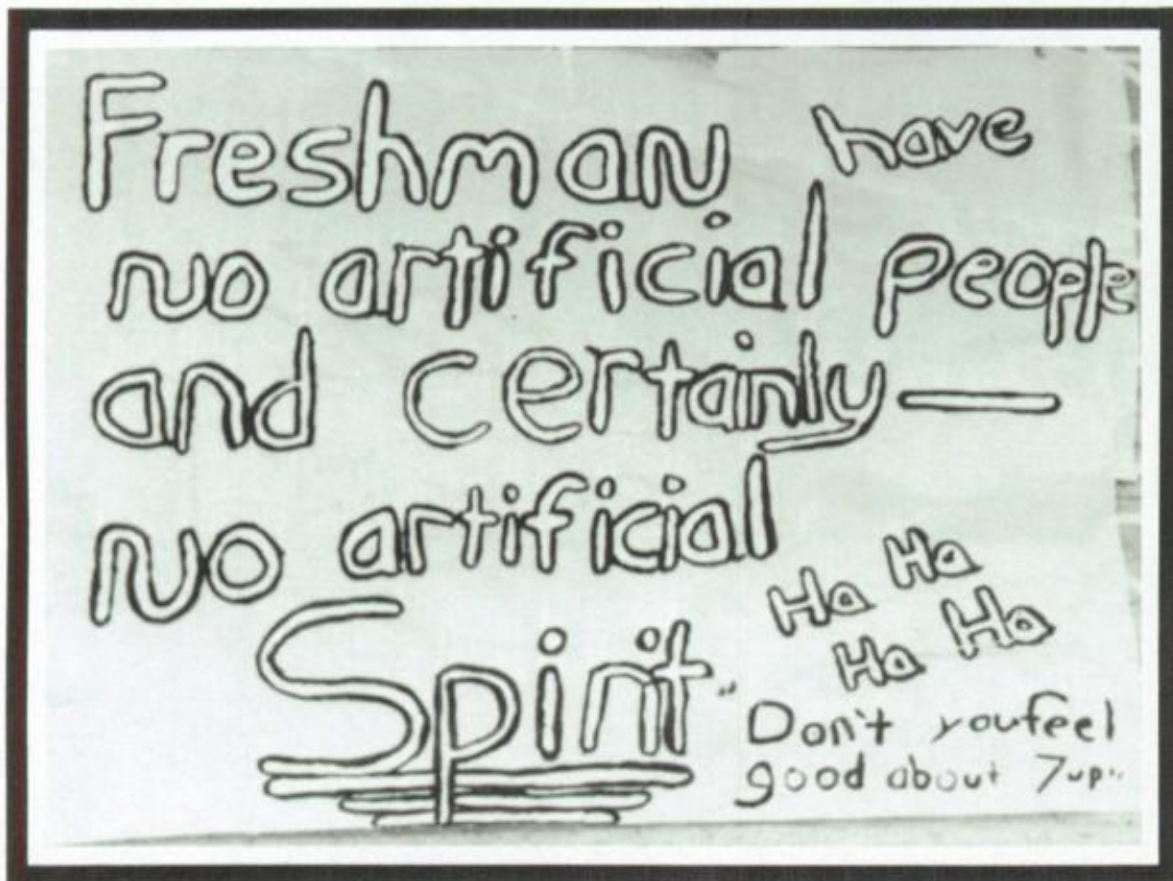 Freshman have
no artificial people
and certainly —
no artificial
Spirit "
Ha Ha
Ha Ha
Don't you feel
good about 7up"